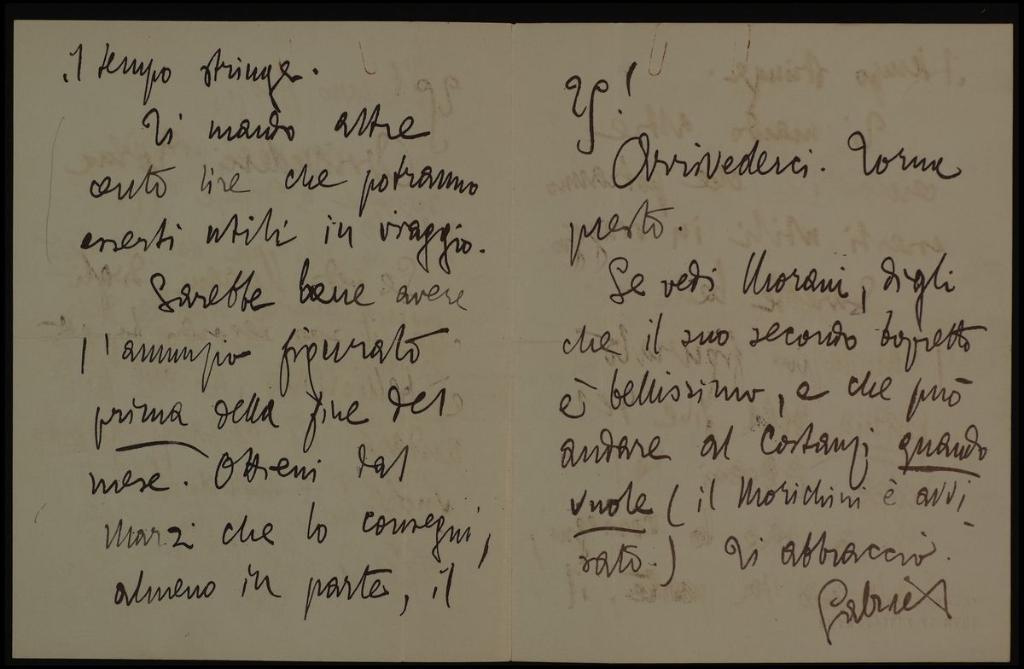 il tempo stringe.
Ti mando altre
cento lire che potranno
esserti utili in viaggio.
Sarebbe bene avere
l'annunzio figurato
prima della fine del
mese. Ottieni dal
Marzi che lo consegni,
almeno in parte, il
25!
Arrivederci. Torna
presto.
Se vedi Morani, digli
che il suo secondo bozzetto
è bellissimo, e che può
andare al Costanzi quando
vuole (il Morichini è avvi-
sato.) Ti abbraccio.
Gabriel